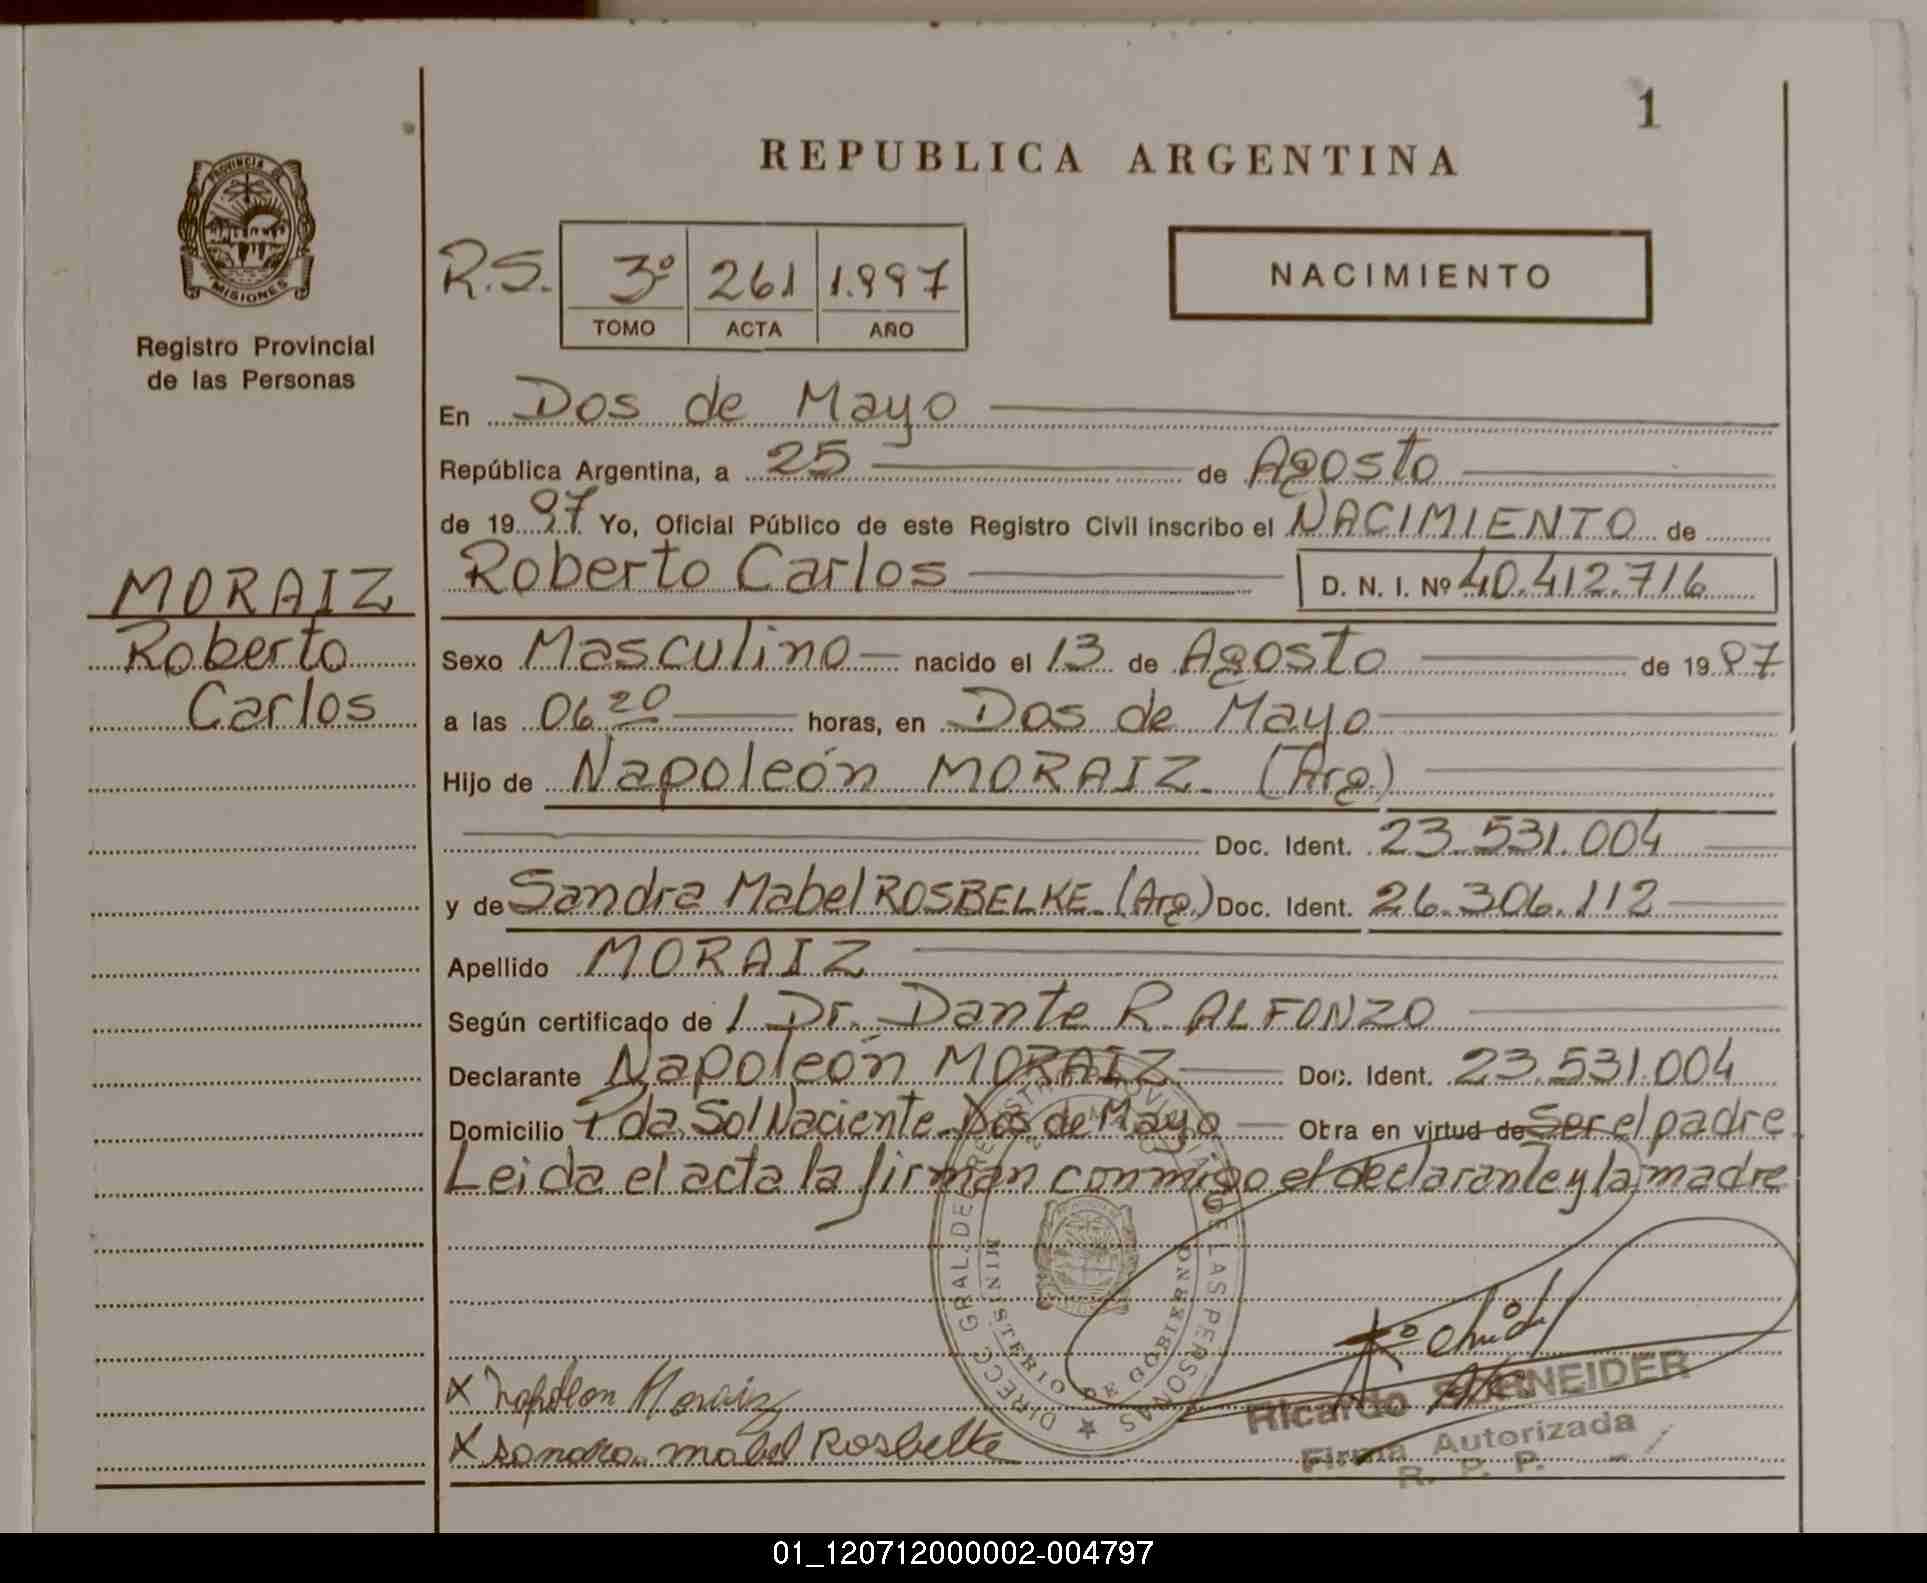 1
REPUBLICA ARGENTINA
PROVINCIA DE
MISIONES
Registro Provincial
de las Personas
R.S. 3º 261 1.997
TOMO ACTA AÑO
NACIMIENTO
En Dos de Mayo
República Argentina, a 25 de Agosto
de 1997 Yo, Oficial Público de este Registro Civil inscribo el NACIMIENTO de
Roberto Carlos D. N. I. Nº 40.412.716
MORAIZ
Roberto
Carlos
Sexo Masculino nacido el 13 de Agosto de 1997
a las 06 20 horas, en Dos de Mayo
Hijo de Napoleón MORAIZ (Arg.)
Doc. Ident. 23.531.004
y de Sandra Mabel ROSBELKE (Arg.) Doc. Ident. 26.306.112
Apellido MORAIZ
Según certificado de / Dr. Dante R. ALFONZO
Declarante Napoleón MORAIZ Doc. Ident. 23.531.004
Domicilio Pda. Sol Naciente Dos de Mayo Obra en virtud de Ser el padre
Leida el acta la firman conmigo el declarante y la madre
DIRECC GRAL. DE REGISTRO PROVINCIAL DE LAS PERSONAS
MINISTERIO DE GOBIERNO
X Napoleon Moraiz
X Sandra mabel Rosbelke
Ricardo SCHNEIDER
Firma Autorizada
R. P. P.
01_120712000002-004797